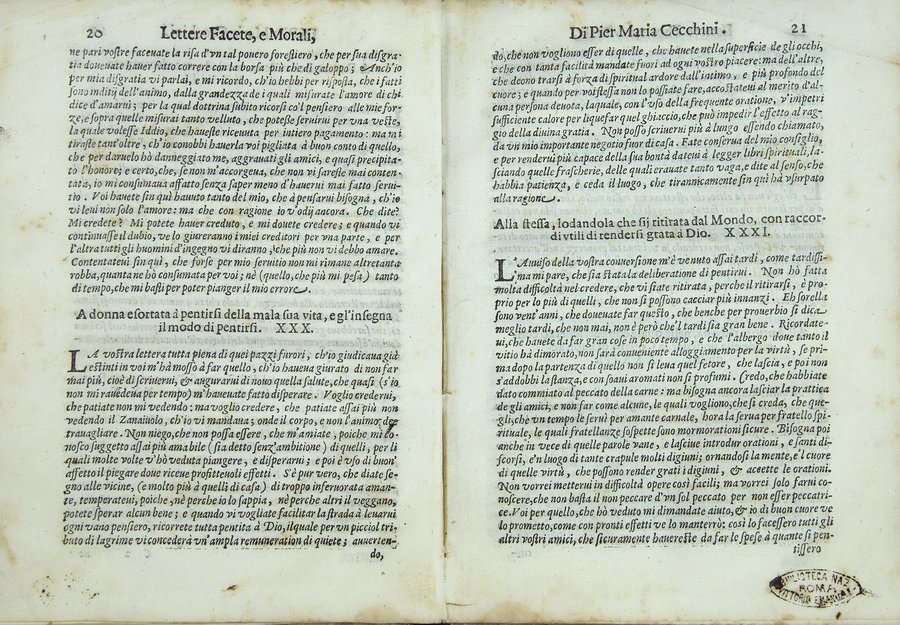 20 Lettere Facete, e Morali,
ne pari vostre faceuate la risa d'vn tal pouero forestiero, che per sua disgra-
tia doueuate hauer fatto correre con la borsa più che di galoppo; Anch'io
per mia disgratia vi parlai, e mi ricordo, ch'io hebbi per risposta, che i fatti
sono inditij dell'animo, dalla grandezza de i quali misurate l'amore di chi
dice d'amarui; per la qual dottrina subito ricorsi co'l pensiero alle mie for-
ze, e sopra quelle misurai tanto velluto, che potesse seruirui per vna veste,
la quale volesse Iddio, che haueste riceuuta per intiero pagamento: ma mi
tiraste tant'oltre, ch'io conobbi hauerla voi pigliata à buon conto di quello,
che per daruelo hò danneggiato me, aggrauati gli amici, e quasi precipita-
to l'honore; e certo, che, se non m'accorgeua, che non vi sareste mai conten-
tata, io mi consumaua affatto senza saper meno d'hauerui mai fatto serui-
tio. Voi hauete sin quì hauuto tanto del mio, che à pensarui bisogna, ch'io
vi leui non solo l'amore: ma che con ragione io v'odij ancora. Che dite?
Mi credete? Mi potete hauer creduto, e mi douete credere; e quando vi
continuasse il dubio, ve lo giureranno i miei creditori per vna parte, e per
l'altra tutti gli huomini d'ingegno vi diranno, che più non vi debbo amare.
Contentateui sin quì, che forse per mio seruitio non mi rimane altretanta
robba, quanta ne hò consumata per voi; nè (quello, che più mi pesa) tanto
di tempo, che mi basti per poter pianger il mio errore.
A donna esortata à pentirsi della mala sua vita, e gl'insegna
il modo di pentirsi. XXX.
LA vostra lettera tutta piena di quei pazzi furori, ch'io giudicaua già
estinti in voi m'hà mosso à far quello, ch'io haueua giurato di non far
mai più, cioè di scriuerui, & augurarui di nouo quella salute, che quasi (s'io
non mi rauedeua per tempo) m'haueuate fatto disperare. Voglio crederui,
che patiate non mi vedendo: ma voglio credere, che patiate assai più non
vedendo il Zanaiuolo, ch'io vi mandaua; onde il corpo, e non l'animo
trauagliare. Non niego, che non possa essere, che m'amiate, poiche mi co-
nosco suggetto assai più amabile (sia detto senz'ambitione) di quelli, per li
quali molte volte v'hò veduta piangere, e disperarui; e poi è vso di buon'
affetto il piegare doue riceue profitteuoli effetti. S'è pur vero, che diate se-
gno alle vicine, (e molto più à quelli di casa) di troppo inferuorata aman-
te, temperateui, poiche, nè perche io lo sappia, nè perche altri il veggano,
potete sperar alcun bene; e quando vi vogliate facilitar la strada à leuarui
ogni vano pensiero, ricorrete tutta pentita à Dio, il quale per vn picciol tri-
buto di lagrime vi concederà vn'ampla remuneration di quiete; auuerten-
do,
Di Pier Maria Cecchini. 21
do, che non vogliono esser di quelle, che hauete nella superficie de gli occhi,
e che con tanta facilità mandate fuori ad ogni vostro piacere: ma dell'altre,
che deono trarsi à forza di spiritual ardore dall'intimo, e più profondo del
cuore; e quando per voi stessa non lo possiate fare, accostateui al merito d'al-
cuna persona deuota, la quale, con l'vso della frequente oratione, v'impetri
sufficiente calore per liquefar quel ghiaccio, che può impedir l'effetto al rag-
gio della diuina gratia. Non posso scriuerui più à lungo essendo chiamato,
da vn mio importante negotio fuor di casa. Fate conserua del mio consiglio,
e per renderui più capace della sua bontà dateui à legger libri spirituali, la-
sciando quelle frascherie, delle quali erauate tanto vaga, e dite al senso, che
habbia patienza, e ceda il luogo, che tirannicamente sin quì hà vsurpato
alla ragione.
Alla stessa, lodandola che sij ritirata dal Mondo, con raccor-
di vtili di rendersi grata à Dio. XXXI.
L'Auiso della vostra conuersione m'è venuto assai tardi, come tardissi-
ma mi pare, che sia stata la deliberatione di pentirui. Non hò fatta
molta difficoltà nel credere, che vi siate ritirata, perche il ritirarsi, è pro-
prio per lo più di quelli, che non si possono cacciar più innanzi. Eh sorella
sono vent'anni, che doueuate far questo, che benche per prouerbio si dica
meglio tardi, che non mai, non è però che'l tardi sia gran bene. Ricordate-
ui, che hauete da far gran cose in poco tempo, e che l'albergo doue tanto il
vitio hà dimorato, non sarà conueniente alloggiamento per la virtù, se pri-
ma dopo la partenza di quello non si leua quel fetore, che lascia, e poi non
s'addobbi la stanza, e con soaui aromati non si profumi. Credo, che habbiate
dato commiato al peccato della carne: ma bisogna ancora lasciar la prattica
de gli amici, e non far come alcune, le quali vogliono, che si creda, che que-
gli, che vn tempo le seruì per amante carnale, hora la serua per fratello spi-
rituale, le quali fratellanze sospette sono mormorationi sicure. Bisogna poi
anche in vece di quelle parole vane, e lasciue introdur orationi, e santi di-
scorsi, e'n luogo di tante crapule molti digiuni; ornandosi la mente, e'l cuore
di quelle virtù, che possono render grati i digiuni, & accette le orationi.
Non vorrei metterui in difficoltà opere così facili; ma vorrei solo farui co-
noscere, che non basta il non peccare d'vn sol peccato per non esser peccatri-
ce. Voi per quello, che hò veduto mi dimandate aiuto, & io di buon cuore ve
lo prometto, come con pronti effetti ve lo manterrò: così lo facessero tutti gli
altri vostri amici, che sicuramente haureste da far le spese à quante si pen-
tissero
BIBLIOTECA NAZ.
ROMA
VITTORIO EMANUELE